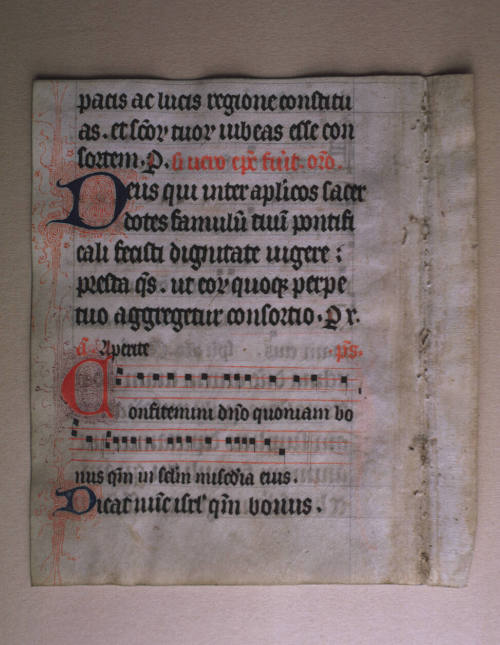 pacis ac lucis regione constitu
as. et scõꝝ tuoꝝ iubeas esse con
sortem. P. si uero epc̃ fuit. orõ.
Deus qui inter aplicos sacer
dotes famulũ tuũ pontifi
cali fecisti dignitate uigere :
presta q̃s. ut eoꝝ quoqꝫ perpe
tuo aggregetur consortio. P x.
a. Aperite p̃s.
Confitemini dño quoniam bo
nus qm̃ in sc̃lm mis̃cdia eius.
Dicat nũc isrl' qm̃ bonus.